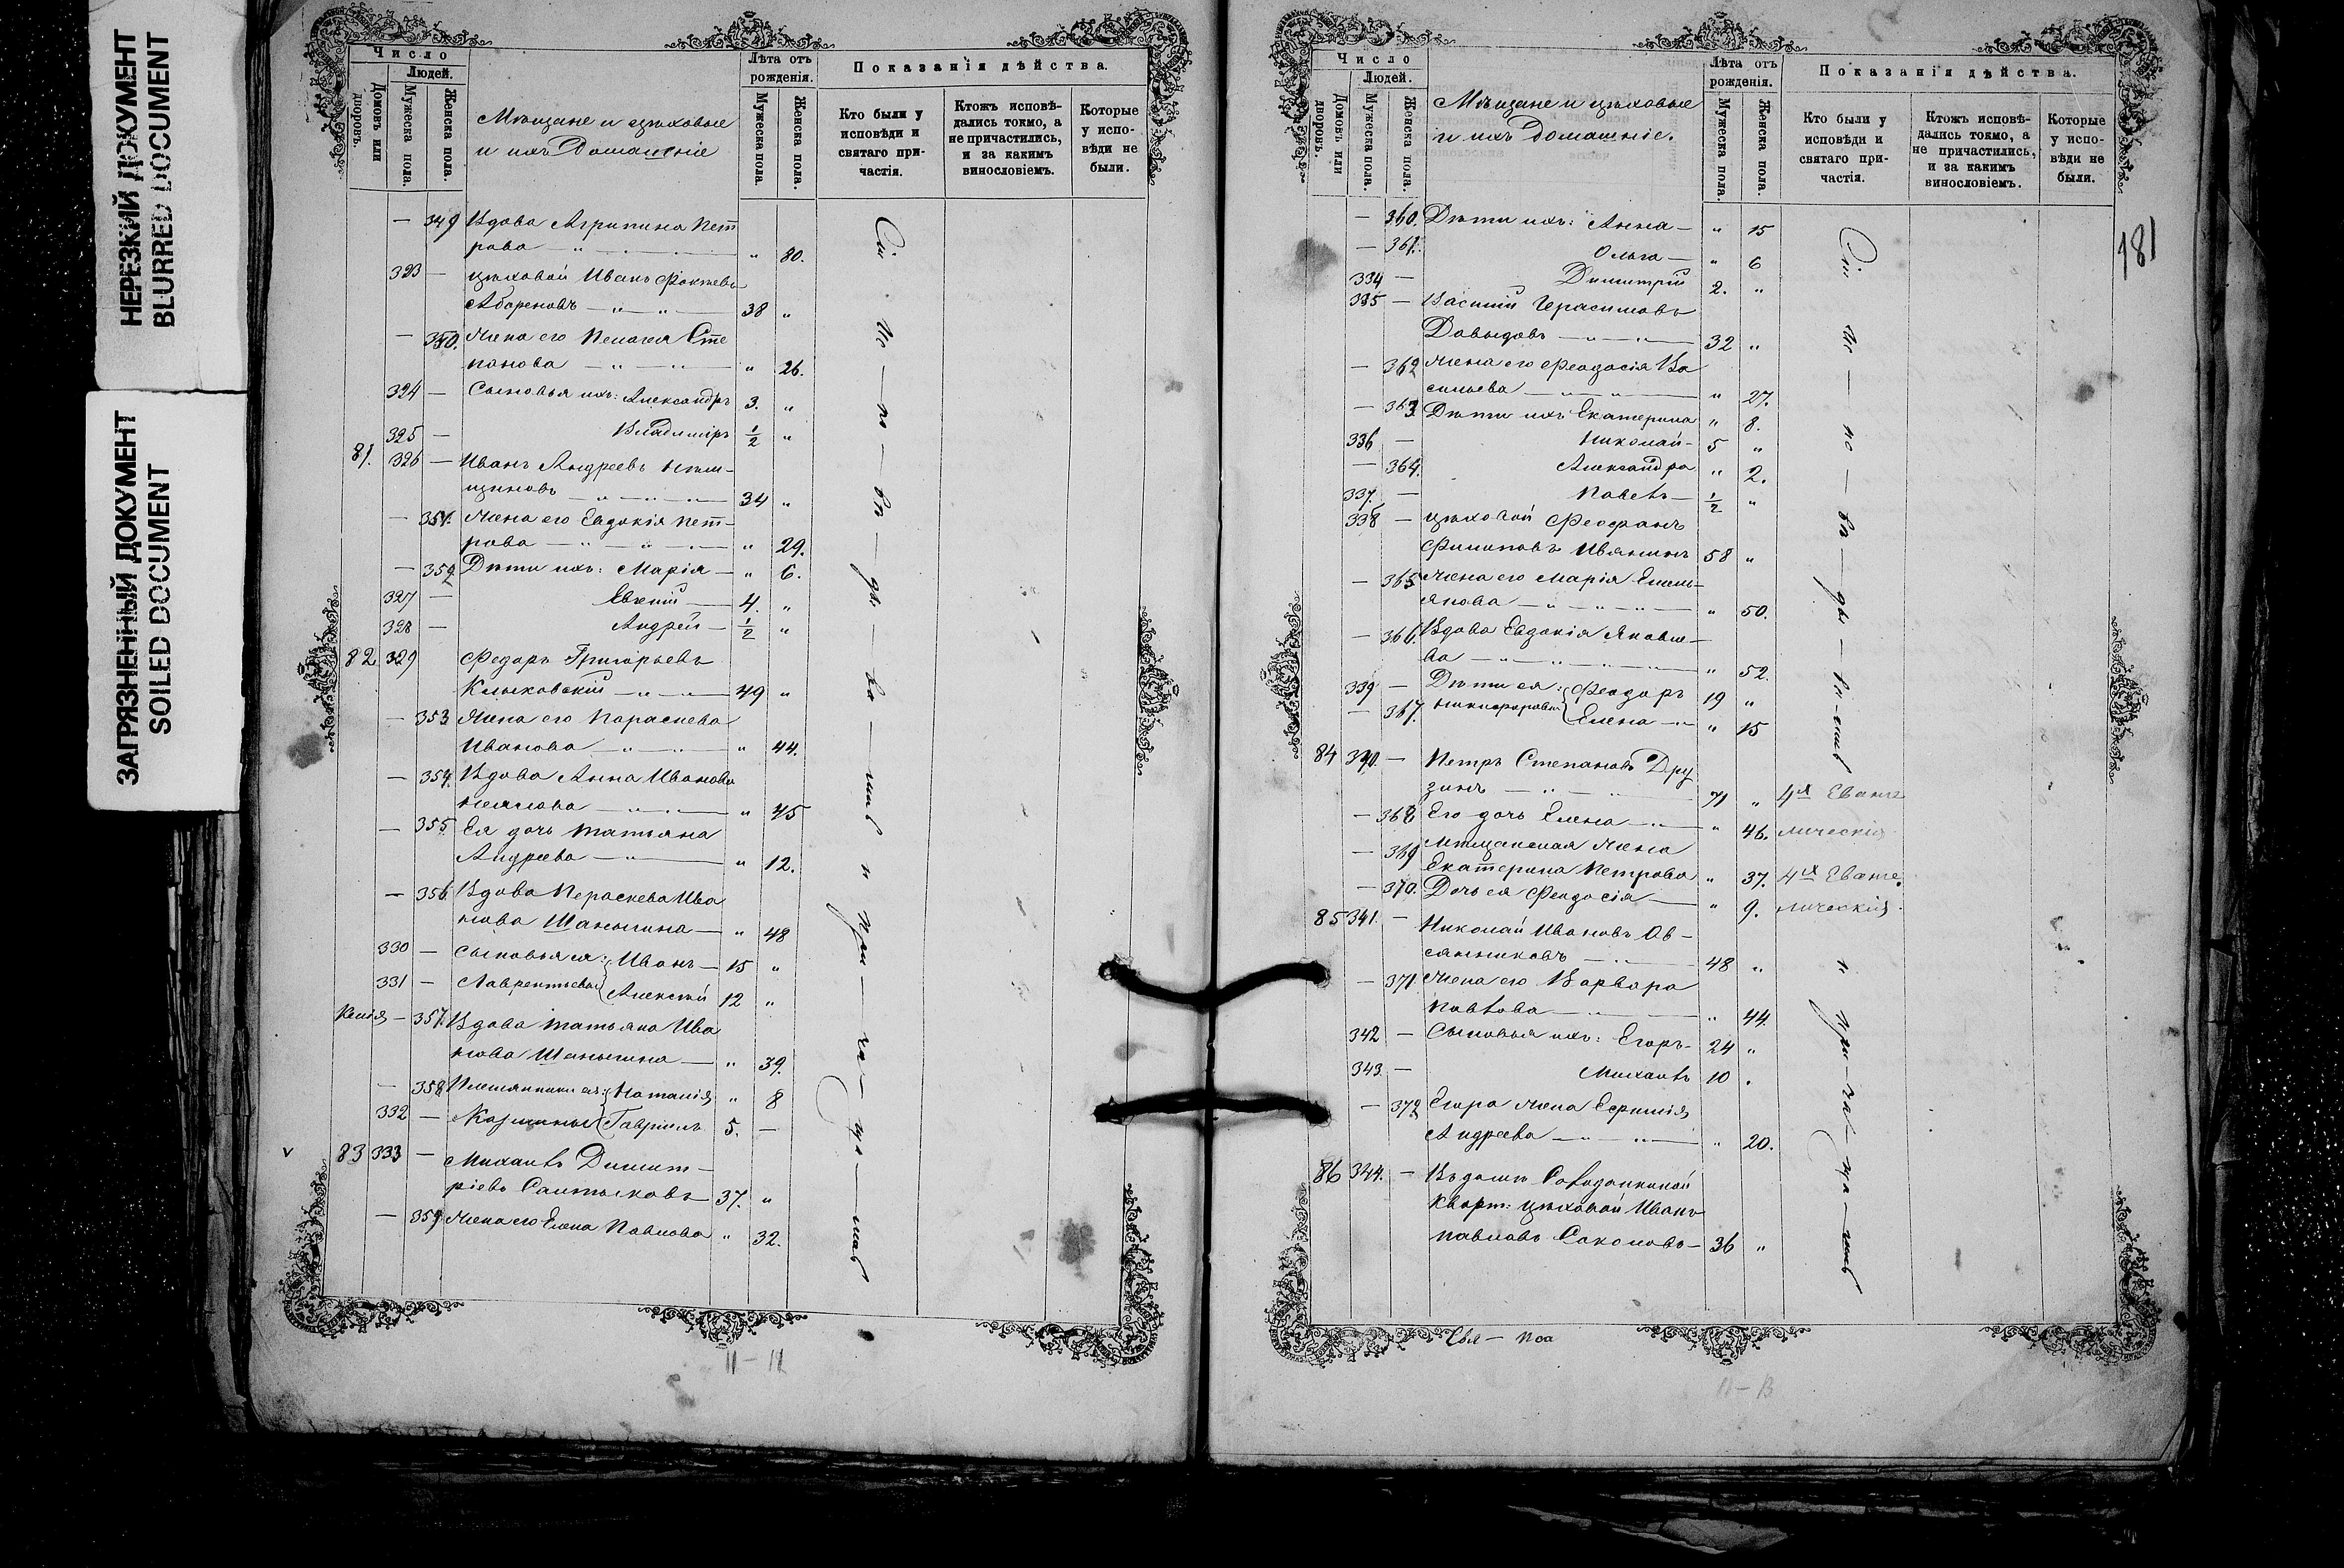 НЕРЕЗКИЙ ДОКУМЕНТ
BLURRED DOCUMENT
ЗАГРЯЗНЕННЫЙ ДОКУМЕНТ
SOILED DOCUMENT
Число
Людей.
Домовъ или дворовъ.
Мужеска пола.
Женска пола.
Мѣщане и цѣховые
и ихъ Домашніе
Лѣта отъ рожденія.
Мужеска пола.
Женска пола.
Показанія дѣйства.
Кто были у исповѣди и святаго причастія.
Ктожъ исповѣдались токмо, а не причастились, и за какимъ винословіемъ.
Которые у исповѣди не были.
— 349 Вдова Агрипина Пет
рова — „ — „ 80.
323 — цѣховой Иванъ
38 „
— 350. Жена его Пелагея Сте
панова — „ — „ 26.
324 — Сыновья ихъ: Александръ 3. „
325 — Владиміръ ½ „
81. 326 — Иванъ Андреевъ
34 „
— 351. Жена его Евдокія Пет-
рова — „ — „ 29.
— 352 Дѣти ихъ: Марія — „ 6.
327 — Евгеній — 4. „
328 — Андрей — ½ „
82 329 Федоръ Григорьевъ
49 „
— 353 Жена его Параскева
Иванова — „ — „ 44.
— 354. Вдова Анна Иванова
„ 45
— 355 Ея дочь Татьяна
Андреева — „ — „ 12.
— 356 Вдова Параскева Ива
нова Шаныгина — „ 48
330 — Сыновья ея: Иванъ — 15 „
331 — Лаврентьевы Алексѣй 12 „
— 357. Вдова Татьяна Ива
нова Шаныгина — „ 39.
— 358 Племянники ея: Наталія „ 8
332 — Гавріилъ 5. —
83 333 — Михаилъ Димит-
ріевъ Салтыковъ 37. „
— 359 Жена его Елена Павлова „ 32.
Сіи Ис — по — вѣ — ды — ва — лись и при — ча — ща — лись
11 — 12
Число
Людей.
Домовъ или дворовъ.
Мужеска пола.
Женска пола.
Мѣщане и цѣховые
и ихъ Домашніе.
Лѣта отъ рожденія.
Мужеска пола.
Женска пола.
Показанія дѣйства.
Кто были у исповѣди и святаго причастія.
Ктожъ исповѣдались токмо, а не причастились, и за какимъ винословіемъ.
Которые у исповѣди не были.
181
— 360. Дѣти ихъ: Анна — „ 15
— 361. Ольга — „ 6
334 — Димитрій 2. „
335 — Василій Герасимовъ
Давыдовъ — „ — 32 „
— 362 Жена его Феодосія Ва
сильева — „ 27.
— 363 Дѣти ихъ Екатерина „ 8.
336 — Николай — 5 „
— 364. Александра „ 2.
337. — Павелъ — ½ „
338 — цѣховой Феофанъ
Филиповъ 58 „
— 365 Жена его Марія Емель-
янова — „ — „ 50.
— 366. Вдова Евдокія Яковле-
ва — „ — „ 52.
339 — Дѣти ея: Феодоръ 19 „
— 367. Никифоровы Елена — „ 15
84 340. — Петръ Степановъ Дру
зинъ — „ — 71 „ 4я Еванге
— 368 Его дочь Елена — „ 46. лическія
— 369 Мѣщанская Жена
Екатерина Петрова „ 37. 4я Еванге
— 370. Дочь ея Феодосія — „ 9. лическія
85 341. — Николай Ивановъ Ов-
сянниковъ — „ — 48 „
— 371. Жена его Варвара
Павлова — „ 44.
342 — Сыновья ихъ: Егоръ — 24 „
343 — Михаилъ 10 .
— 372 Егора жена Евфимія
Андреева — „ — „ 20.
86 344. — Въ домѣ
кварт: цѣховой Иванъ
Павловъ Соколовъ — 36 „
Сіи Ис — по — вѣ — ды — ва — лись и при — ча — ща — лись